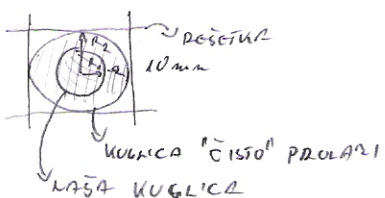 REŠETKA
R₂
R₁
10mm
KUGLICA "ČISTO" PROLAZI
NAŠA KUGLICA